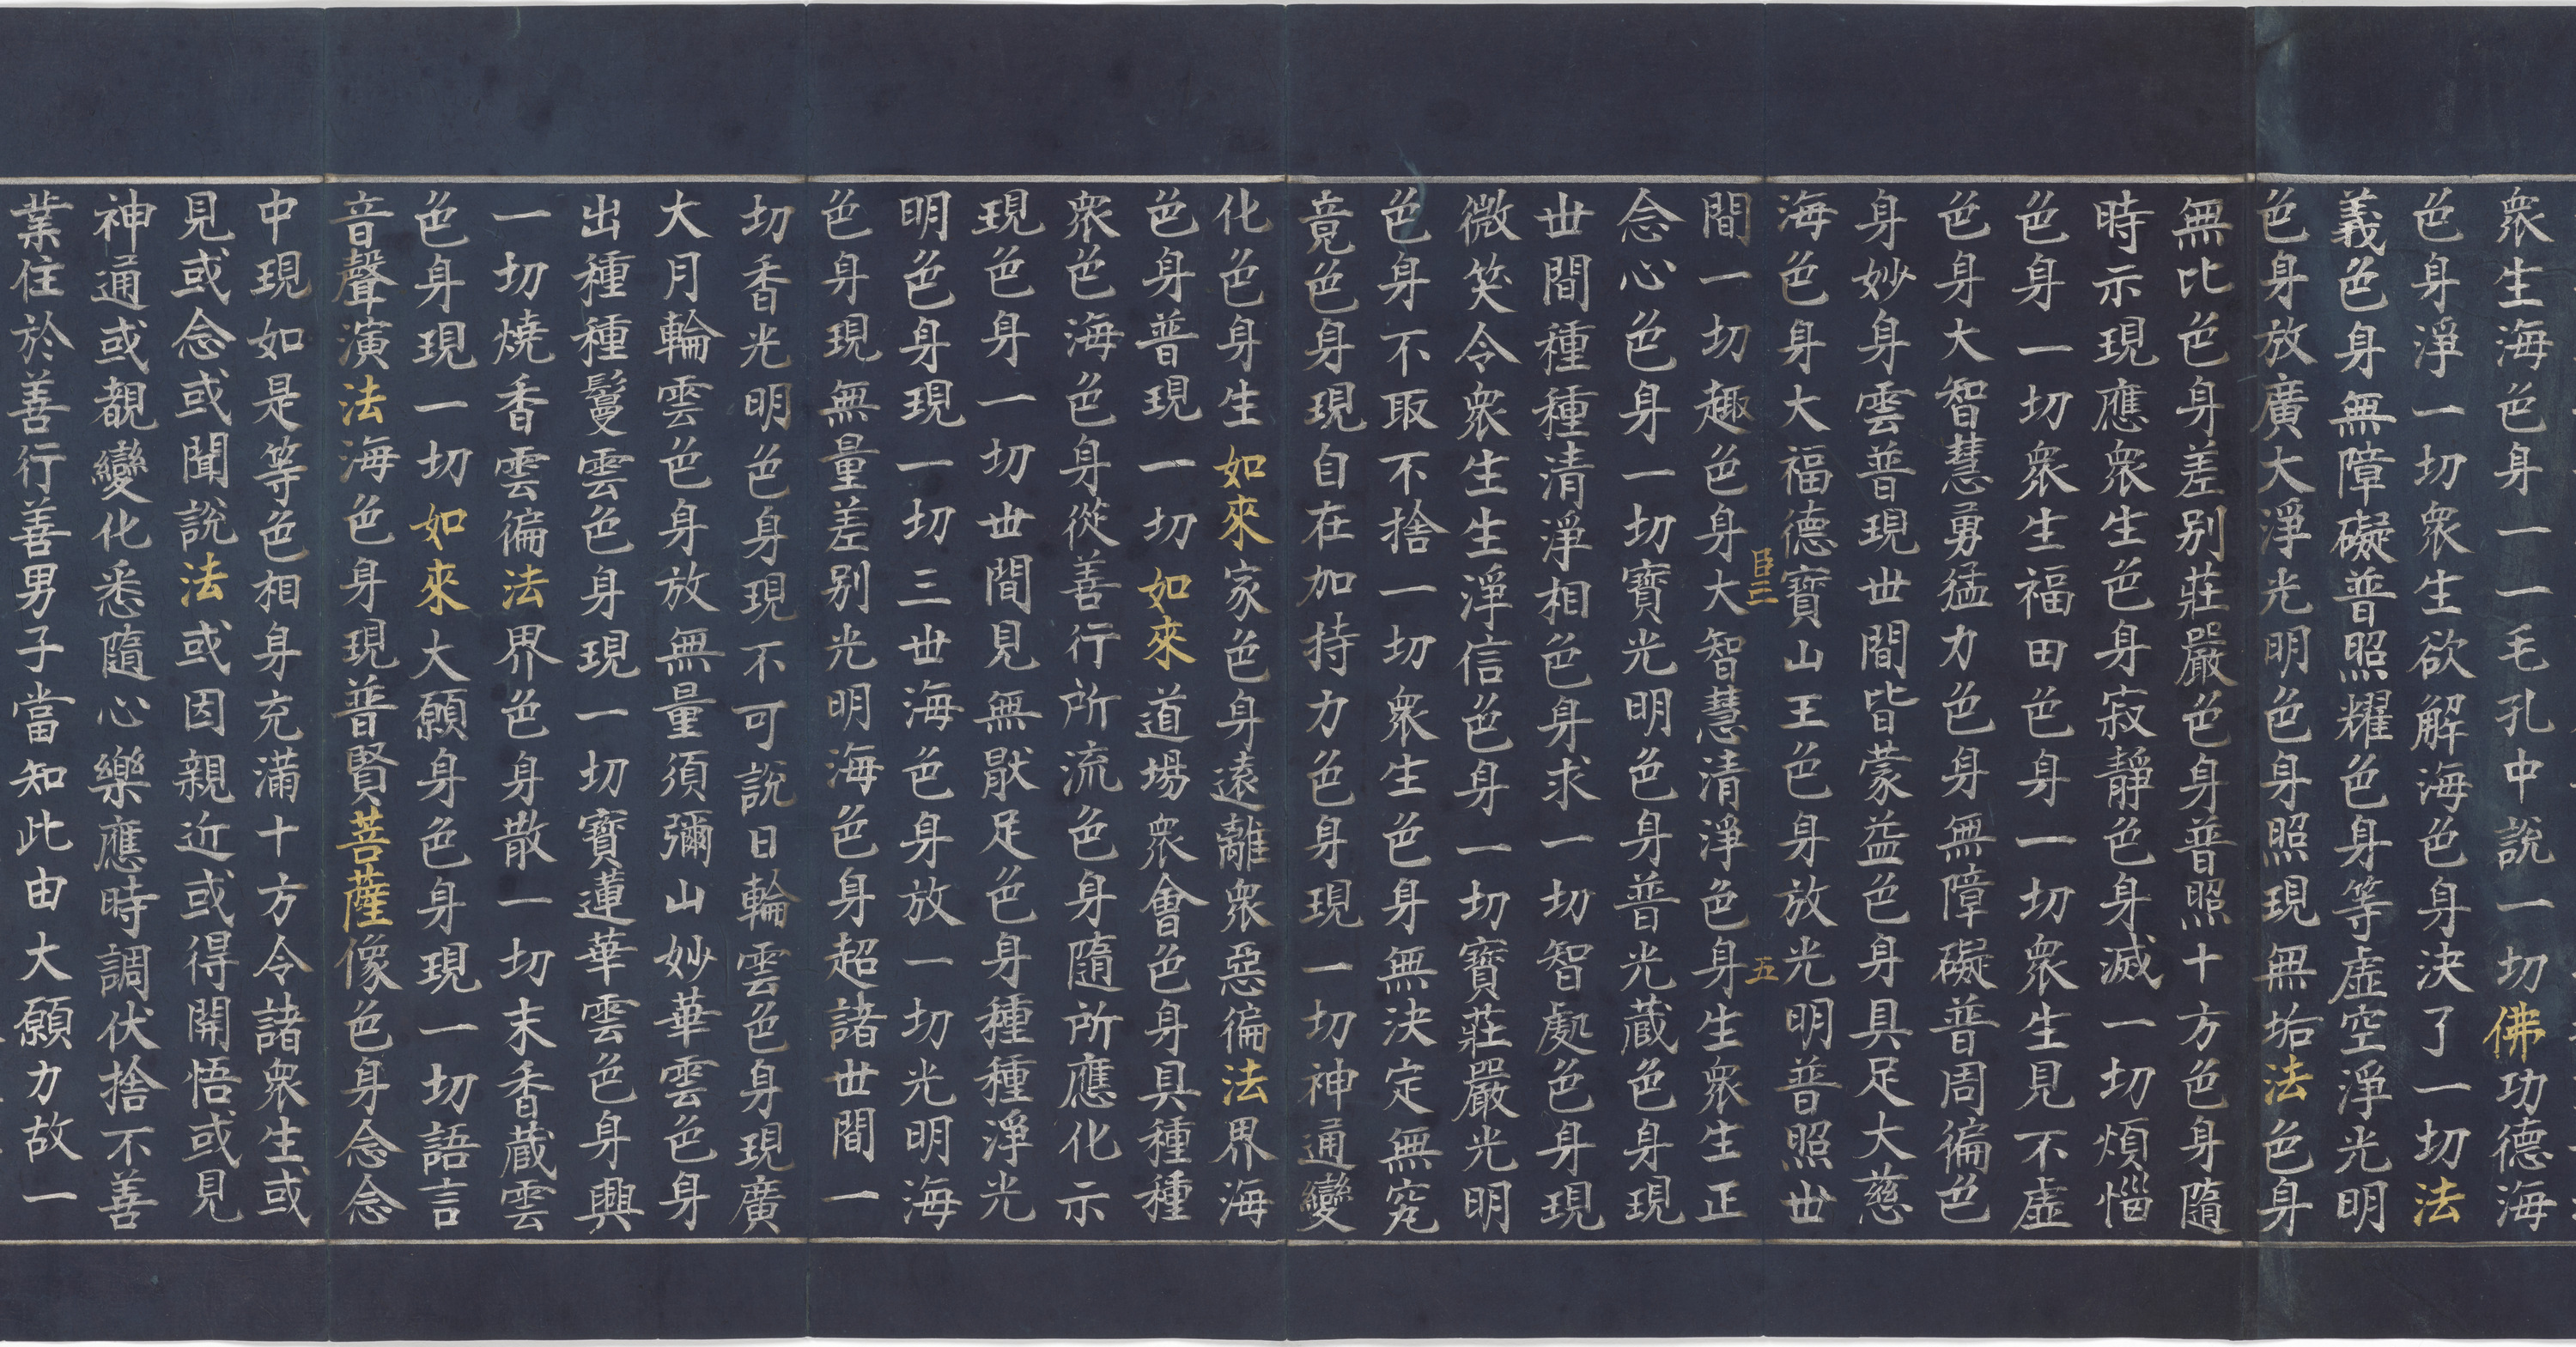 衆生海色身一一毛孔中說一切佛功德海
色身淨一切衆生欲解海色身決了一切法
義色身無障礙普照耀色身等虛空淨光明
色身放廣大淨光明色身照現無垢法色身
無比色身差别莊嚴色身普照十方色身隨
時示現應衆生色身寂靜色身滅一切煩惱
色身一切衆生福田色身一切衆生見不虛
色身大智慧勇猛力色身無障礙普周徧色
身妙身雲普現世間皆蒙益色身具足大慈
海色身大福德寶山王色身放光明普照世
臣三 五
間一切趣色身大智慧清淨色身生衆生正
念心色身一切寶光明色身普光藏色身現
世間種種清淨相色身求一切智處色身現
微笑令衆生生淨信色身一切寶莊嚴光明
色身不取不捨一切衆生色身無決定無究
竟色身現自在加持力色身現一切神通變
化色身生如來家色身遠離衆惡徧法界海
色身普現一切如來道場衆會色身具種種
衆色海色身從善行所流色身隨所應化示
現色身一切世間見無厭足色身種種淨光
明色身現一切三世海色身放一切光明海
色身現無量差别光明海色身超諸世間一
切香光明色身現不可說日輪雲色身現廣
大月輪雲色身放無量須彌山妙華雲色身
出種種鬘雲色身現一切寶蓮華雲色身興
一切燒香雲徧法界色身散一切末香藏雲
色身現一切如來大願身色身現一切語言
音聲演法海色身現普賢菩薩像色身念念
中現如是等色相身充滿十方令諸衆生或
見或念或聞說法或因親近或得開悟或見
神通或覩變化悉隨心樂應時調伏捨不善
業住於善行善男子當知此由大願力故一